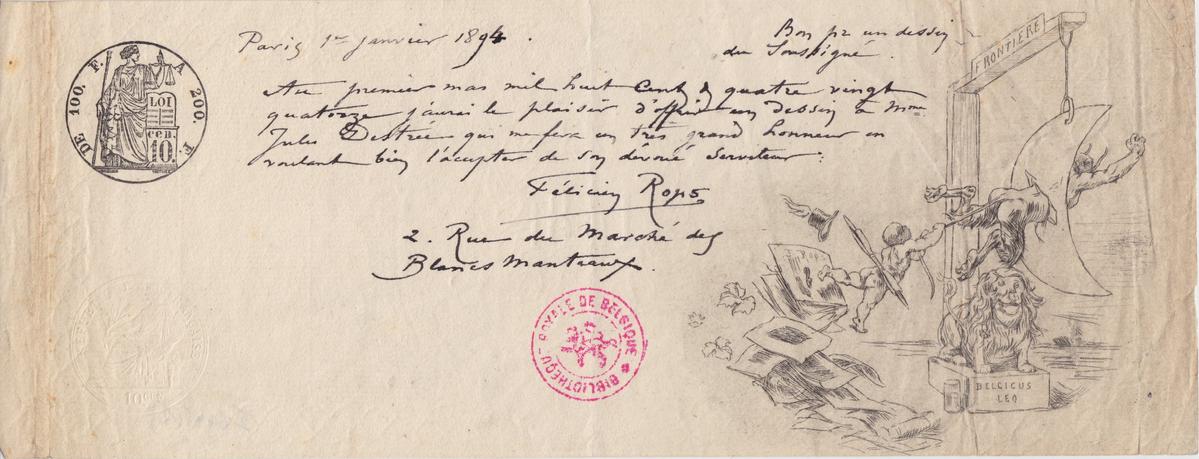 Paris 1er janvier 1894.
Bon pr un dessin
du Soussigné.
Au premier mas mil huit cent & quatre vingt
quatorze j'aurai le plaisir d'offrir un dessin à Mme
Jules Destrée qui me fera un très grand honneur en
voulant bien l'accepter de son dévoué serviteur:
Félicien Rops
2. Rue du Marché des
Blancs Manteaux.
DE 100. F. A 200. F.
LOI
cen.
10.
BIBLIOTHEQU. ROYALE DE BELGIQUE
FRONTIERE
BELGICUS
LEO